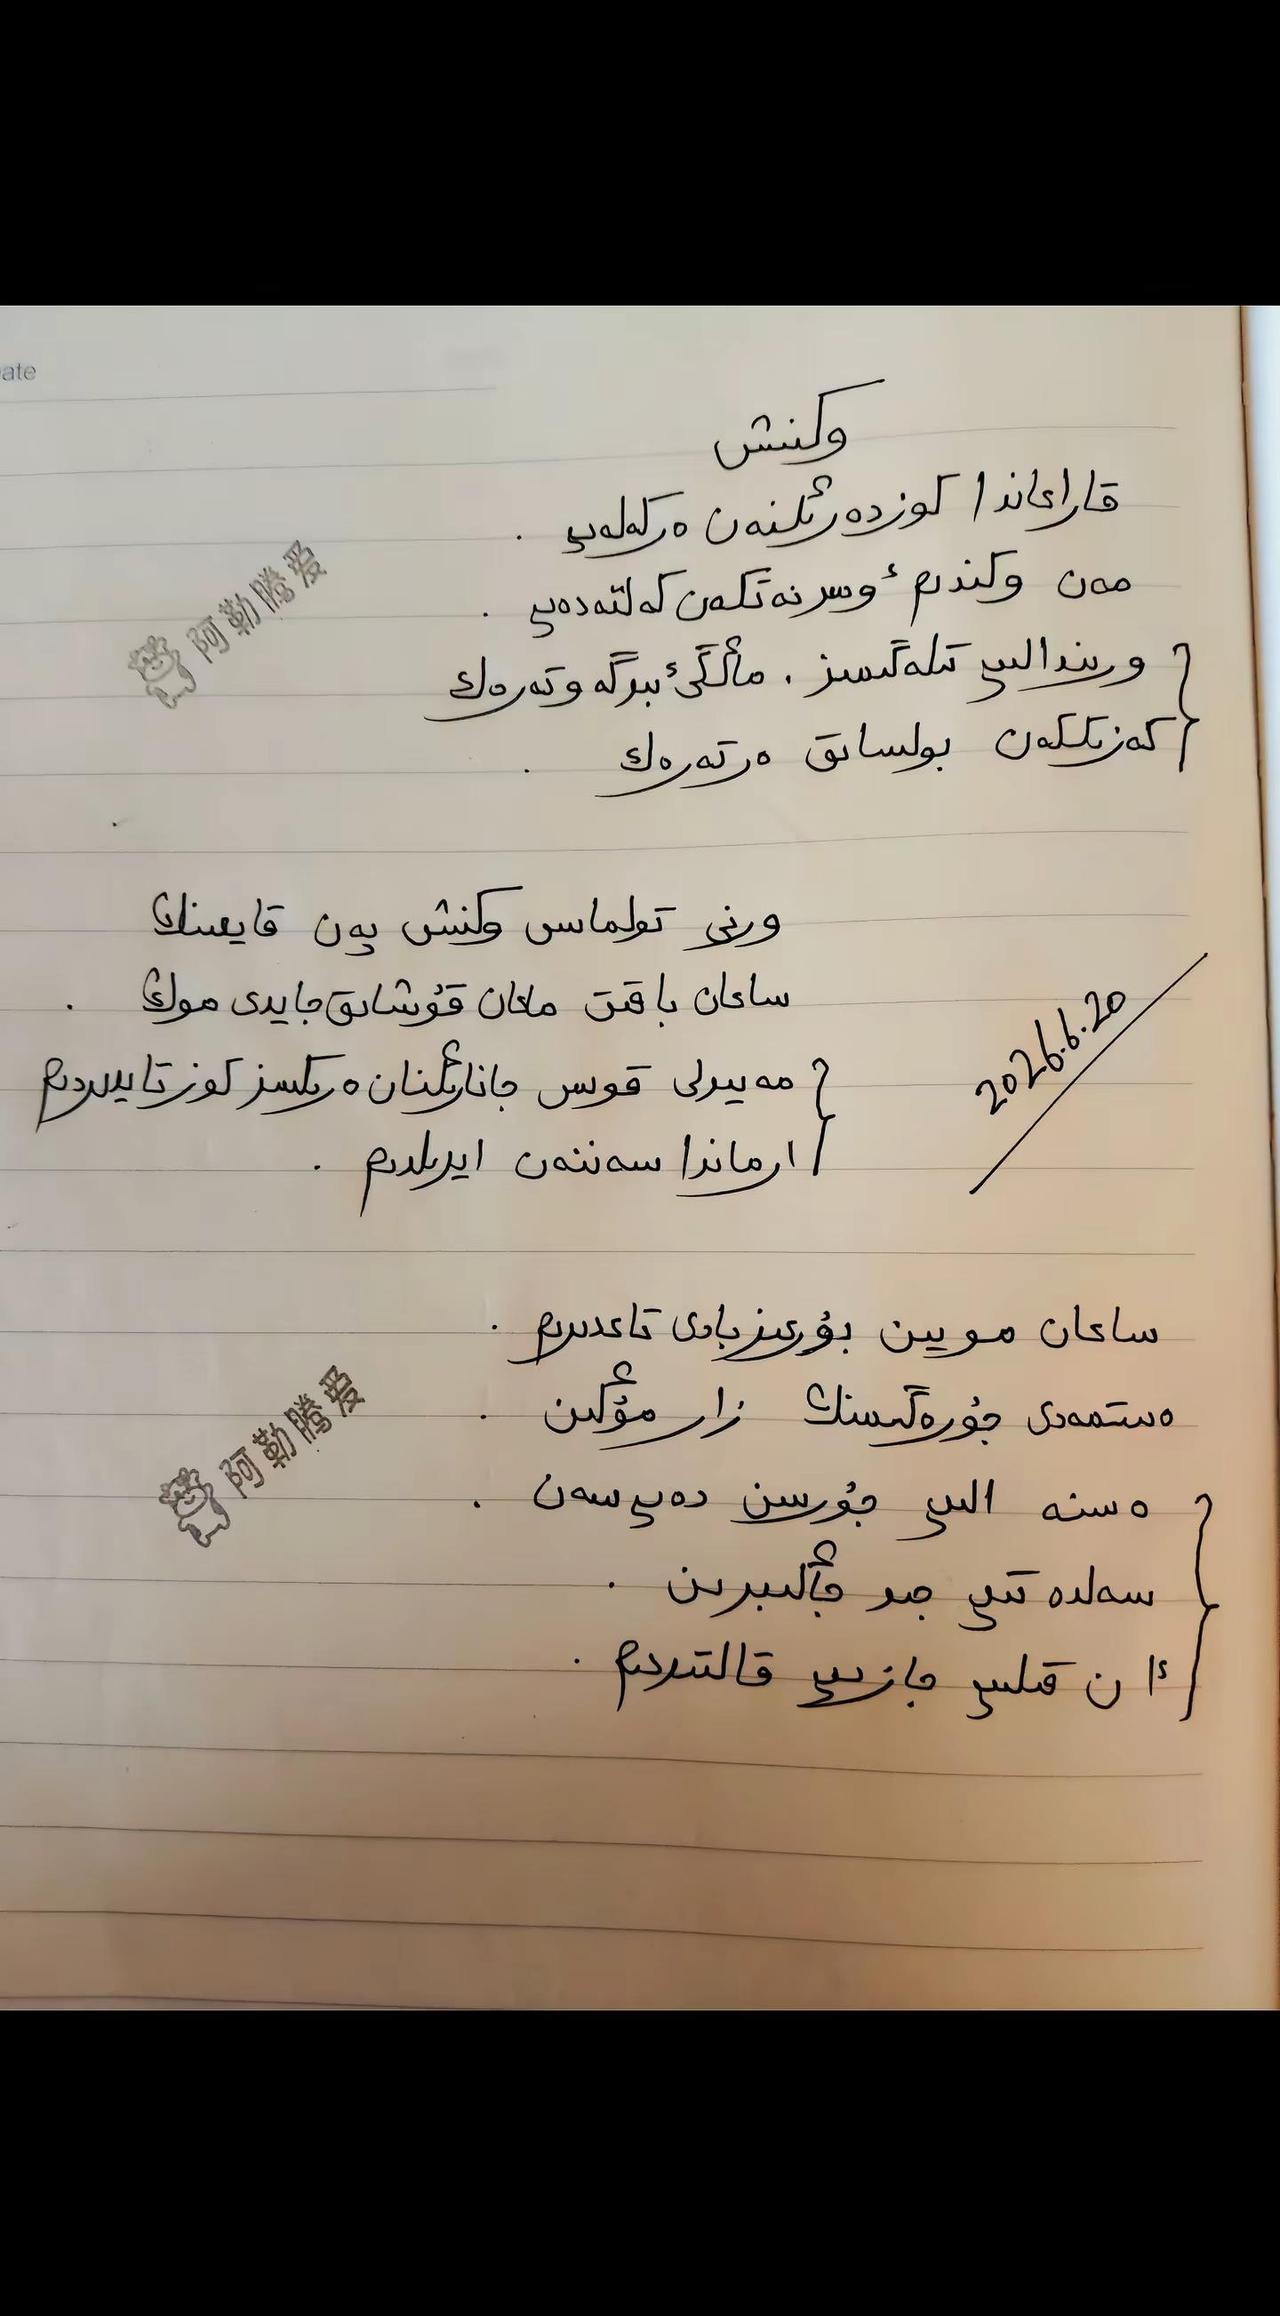 Date
وكىنىش
قاراعاندا كوزدەرىڭنەن ەركەلەپ .
مەن وكىندىم ٴوسىرنەتكەن كەلتەدەپ .
ورىندالىپ تىلەگىمىز ، ماڭگى ٴبىرگە وتەرەك
كەزىككەن بولساق ەرتەرەك .
ورنى تولماس وكىنىش پەن قايعىنىڭ
ساعان باقىت ماعان قۇشاق جايدى موڭ .
مەيىرلى قوس جانارىڭنان ەرىكسىز كوز تايدىردىم
ارماندا سەننەن ايرىلدىم .
2026.6.20
ساعان مويىن بۇرعىزبادى تاعدىرىم .
ەستىمەدى جۇرەگىمنىڭ زار مۇڭىن .
ەسىنە الىپ جۇرسىن دەپ سەن .
سەلدە تىپ جىر جاڭبىرىن .
ٴان قىلىپ جازىپ قالتىردىم .
阿勒腾爱
阿勒腾爱